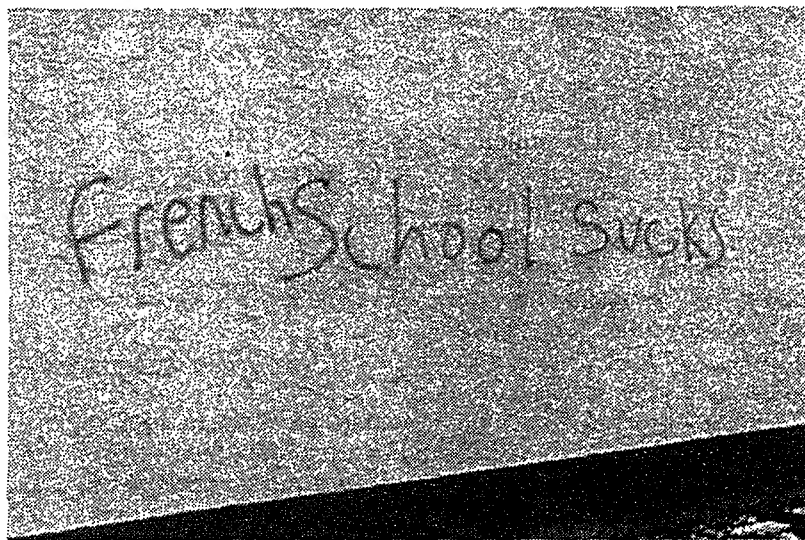 French School Sucks